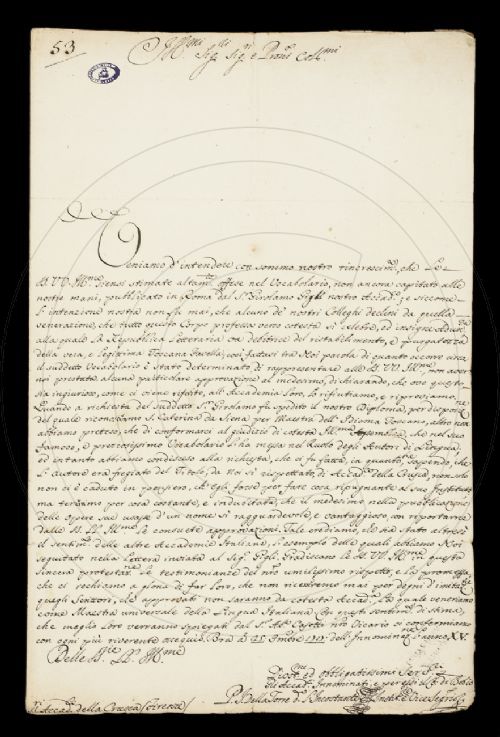 53
Ill.mi Sig.ri Sig.ri e Proni Col.mi
Veniamo d'intendere con sommo nostro rincrescim.to, che Le
SS. VV. Ill.me siensi stimate altam.te offese nel Vocabolario, non ancora capitato alle
nostre mani, pubblicato in Roma dal S.r Girolamo Gigli nostro Accad.co; e siccome
l'intenzione nostra non fu mai, che alcuno de' nostri Colleghi declini da quella
venerazione, che tutto questo Corpo professa verso cotesta sì celebre, ed insigne Adun.za
alla quale la Repubblica Letteraria va debitrice del ristabilimento, e purgatezza
della vera, e legittima Toscana favella; così fattasi tra Noi parola di quanto occorre circa
il suddetto Vocabolario è stato determinato di rappresentare alle SS. VV. Ill.me non aver
noi prestata alcuna particolare approvazione al medesimo, dichiarando, che ove questo
sia ingiurioso, come ci viene riferito, all'Accademia Loro, lo rifiutiamo, e riproviamo
Quando a richiesta del suddetto S.r Girolamo fu spedito il nostro Diploma, per disposiz.ne
del quale riceviamo S. Caterina da Siena per Maestra dell'Idioma Toscano, altro non
abbiamo preteso, che di conformarci al giudicio di cotesta Ill.ma che nel suo
famoso, e preziosissimo Vocabolario l'ha messa nel Ruolo degli Autori di Lingua
ed intanto abbiamo condisceso alla richiesta, che ci fu fatta, in quanto, sapendo, che
l'autore era fregiato del Titolo, da Noi sì rispettato, di Accad.co della Crusca, non solo
non ci è caduto in pensiero, ch'egli fosse per fare cosa ripugnante al suo Instituto
ma tenevamo per cosa costante, e indubitata, che il medesimo nella pubblicazione
delle opere sue usasse d'un nome sì ragguardevole, e vantaggioso, con riportarne
dalle SS. LL. Ill.me le consuete approvazioni. Tale crediamo, che sia stato altresì
il sentim.to delle altre Accademie Italiane, l'esempio delle quali abbiamo Noi
seguitato nella Lettera inviata al Sig.r Gigli. Gradiscano le SS. VV. Ill.me questa
sincera protestaz.ne le testimonianze del nro umilissimo rispetto, e la promessa,
che ci rechiamo a gloria di far Loro, che non riceveremo mai per degni d'imitaz.ne
quegli Scrittori, che approvati non saranno da cotesta Accad.a la quale veneriamo
come Maestra universale della Lingua Italiana. Con questi sentim.ti di stima,
che meglio Loro verranno spiegati dal S.r Ab.e nro Vicario ci confermiamo
con ogni più riverente ossequio. Bra li 25. 1717. dell'Innominaz.ne anno XV.
Delle SS. LL. Ill.me
Divot.mi ed Obbligatissimi Ser.ri
Gli Accad.ci Innominati, e per essi
P. G. Della Torre
Accad.ci della Crusca (Firenze)